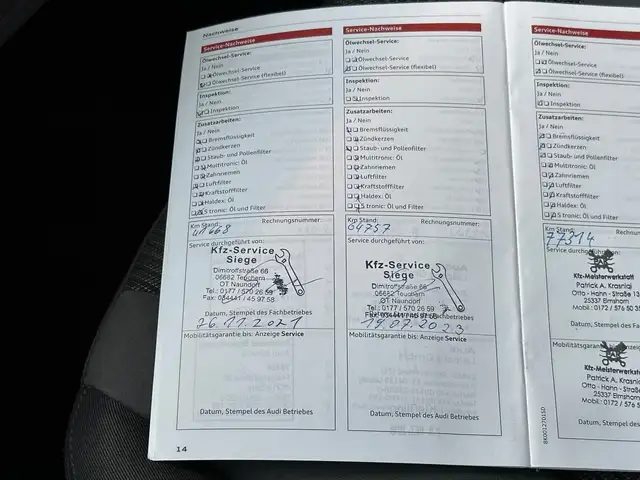 Nachweise
Service-Nachweise
Ölwechsel-Service:
Ja / Nein
Ölwechsel-Service
Ölwechsel-Service (flexibel)
Inspektion:
Ja / Nein
Inspektion
Zusatzarbeiten:
Ja / Nein
Bremsflüssigkeit
Zündkerzen
Staub- und Pollenfilter
Multitronic: Öl
Zahnriemen
Luftfilter
Kraftstofffilter
Haldex: Öl
S tronic: Öl und Filter
Km Stand: Rechnungsnummer:
41668
Service durchgeführt von:
Kfz-Service
Siege
Dimitroffstraße 66
06682 Teuchern
OT Naundorf
Tel.: 0177 / 570 26 59
Fax: 034441 / 45 97 58
Datum, Stempel des Fachbetriebes
26.11.2021
Mobilitätsgarantie bis: Anzeige Service
Datum, Stempel des Audi Betriebes
14
Service-Nachweise
Ölwechsel-Service:
Ja / Nein
Ölwechsel-Service
Ölwechsel-Service (flexibel)
Inspektion:
Ja / Nein
Inspektion
Zusatzarbeiten:
Ja / Nein
Bremsflüssigkeit
Zündkerzen
Staub- und Pollenfilter
Multitronic: Öl
Zahnriemen
Luftfilter
Kraftstofffilter
Haldex: Öl
S tronic: Öl und Filter
Km Stand: Rechnungsnummer:
64757
Service durchgeführt von:
Kfz-Service
Siege
Dimitroffstraße 66
06682 Teuchern
OT Naundorf
Tel.: 0177 / 570 26 59
Fax: 034441 / 45 97 58
19.07.2023
Mobilitätsgarantie bis: Anzeige Service
Datum, Stempel des Audi Betriebes
Service-Nachweise
Ölwechsel-Service:
Ja / Nein
Ölwechsel-Service
Ölwechsel-Service (flexibel)
Inspektion:
Ja / Nein
Inspektion
Zusatzarbeiten:
Ja / Nein
Bremsflüssigkeit
Zündkerzen
Staub- und Pollenfilter
Multitronic: Öl
Zahnriemen
Luftfilter
Kraftstofffilter
Haldex: Öl
S tronic: Öl und Filter
Km Stand:
77314
Kfz-Meisterwerkstatt
Patrick A. Krasniqi
Otto - Hahn - Straße 13
25337 Elmshorn
Mobil.: 0172 / 576 50 35
Datum, Stempel des Fac
Mobilitätsgarantie
Kfz-Meisterwerksta
Patrick A. Krasniq
Otto - Hahn - Straße
25337 Elmshorn
Mobil.: 0172 / 576
Datum, Stempel des Audi